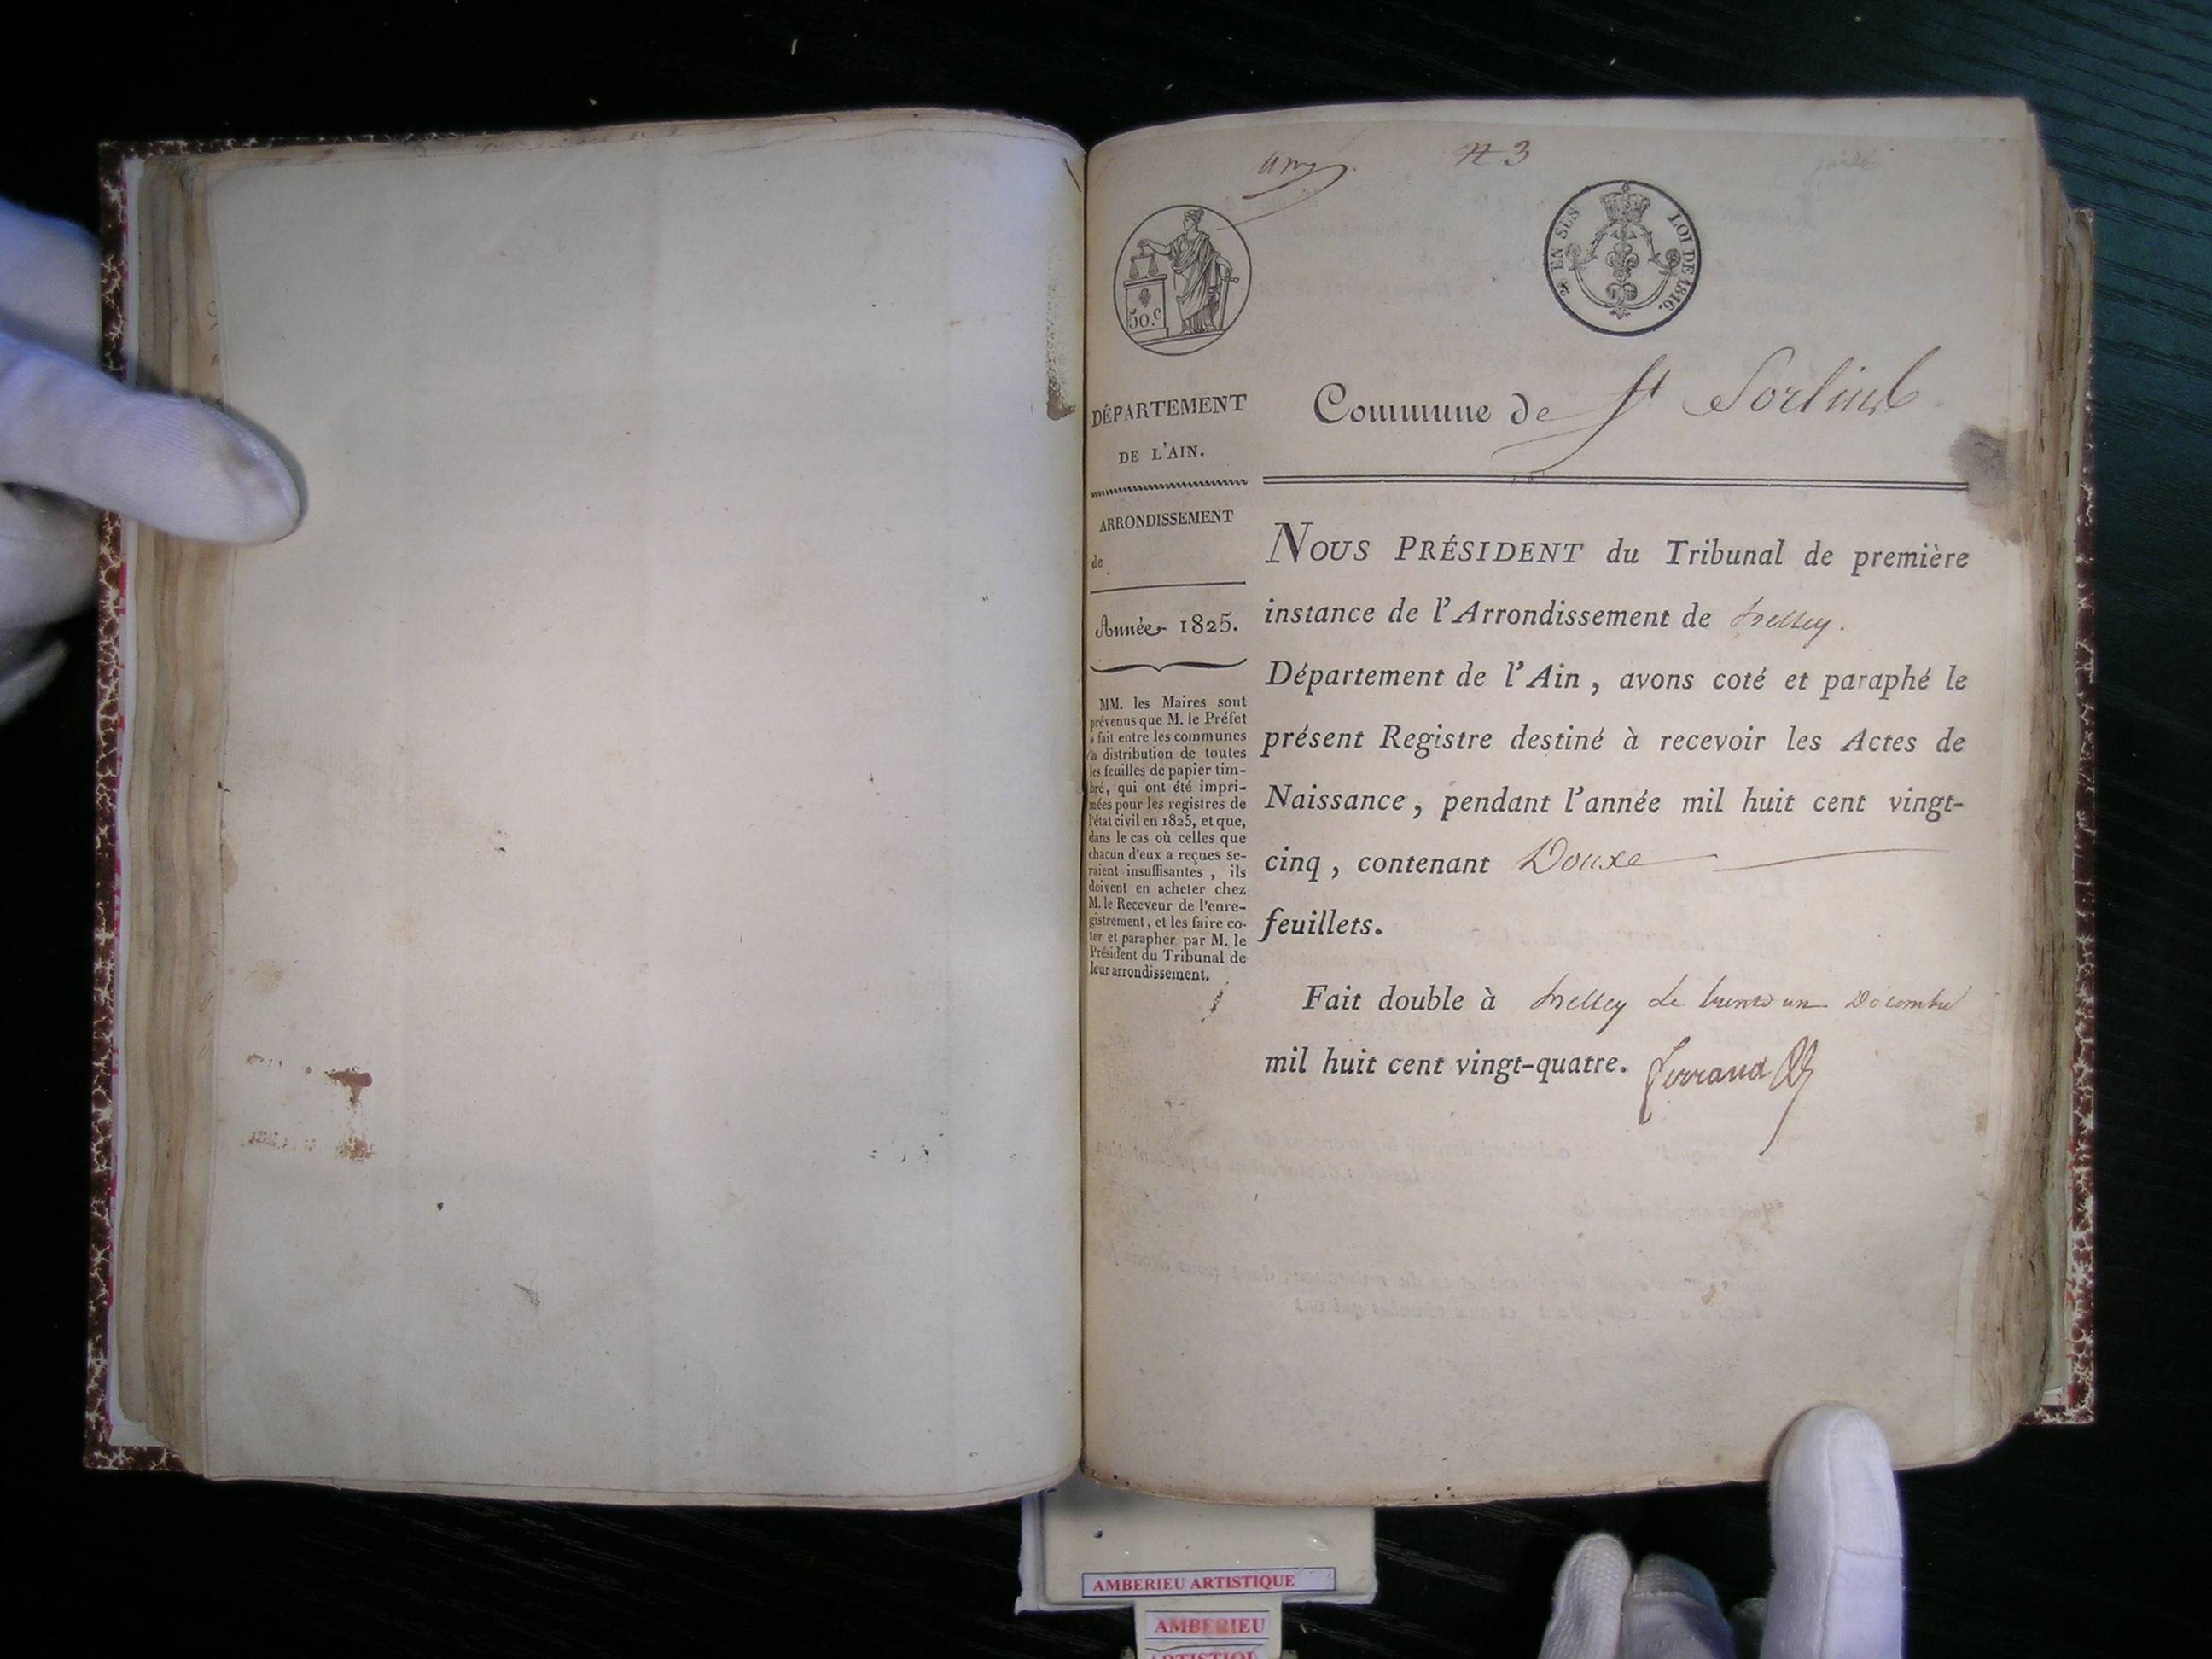 N 3
2/ EN SUS LOI DE 1816.
50.c
DÉPARTEMENT
DE L'AIN.
ARRONDISSEMENT
de
Année 1825.
MM. les Maires sont
prévenus que M. le Préfet
a fait entre les communes
la distribution de toutes
les feuilles de papier tim-
bré, qui ont été impri-
mées pour les registres de
l'état civil en 1825, et que,
dans le cas où celles que
chacun d'eux a reçues se-
raient insuffisantes, ils
doivent en acheter chez
M. le Receveur de l'enre-
gistrement, et les faire co-
ter et parapher par M. le
Président du Tribunal de
leur arrondissement.
Commune de St Sorlin
NOUS PRÉSIDENT du Tribunal de première
instance de l'Arrondissement de Belley.
Département de l'Ain, avons coté et paraphé le
présent Registre destiné à recevoir les Actes de
Naissance, pendant l'année mil huit cent vingt-
cinq, contenant Douze
feuillets.
Fait double à Belley le trente un Décembre
mil huit cent vingt-quatre. Ferrand
AMBERIEU ARTISTIQUE
AMBERIEU
ARTISTIQUE